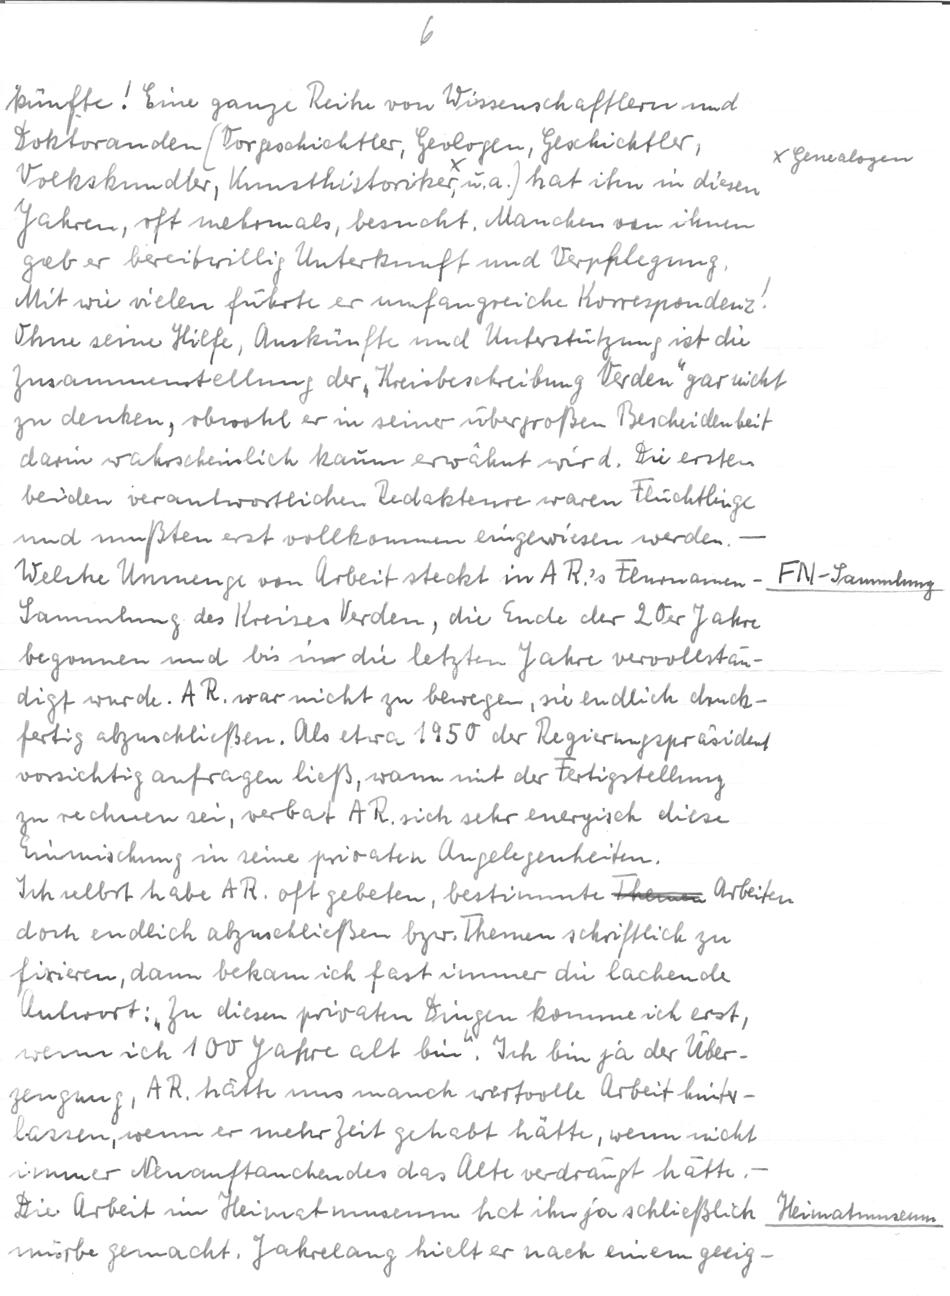 6
künfte! Eine ganze Reihe von Wissenschaftlern und
Doktoranden (Vorgeschichtler, Geologen, Geschichtler,
x Genealogen
Volkskundler, Kunsthistoriker,x u.a.) hat ihn in diesen
Jahren, oft mehrmals, besucht. Manchen von ihnen
gab er bereitwillig Unterkunft und Verpflegung.
Mit wie vielen führte er umfangreiche Korrespondenz!
Ohne seine Hilfe, Auskünfte und Unterstützung ist die
Zusammenstellung der „Kreisbeschreibung Verden" gar nicht
zu denken, obwohl er in seiner übergroßen Bescheidenheit
darin wahrscheinlich kaum erwähnt wird. Die ersten
beiden verantwortlichen Redakteure waren Flüchtlinge
und mußten erst vollkommen eingewiesen werden. —
Welche Unmenge von Arbeit steckt in AR.'s Flurnamen- FN-Sammlung
Sammlung des Kreises Verden, die Ende der 20er Jahre
begonnen und bis in die letzten Jahre vervollstän-
digt wurde. AR. war nicht zu bewegen, sie endlich druck-
fertig abzuschließen. Als etwa 1950 der Regierungspräsident
vorsichtig anfragen ließ, wann mit der Fertigstellung
zu rechnen sei, verbat AR. sich sehr energisch diese
Einmischung in seine privaten Angelegenheiten.
Ich selbst habe AR. oft gebeten, bestimmte Themen Arbeiten
doch endlich abzuschließen bzw. Themen schriftlich zu
fixieren, dann bekam ich fast immer die lachende
Antwort: „Zu diesen privaten Dingen komme ich erst,
wenn ich 100 Jahre alt bin". Ich bin ja der Über-
zeugung, AR. hätte uns manch wertvolle Arbeit hinter-
lassen, wenn er mehr Zeit gehabt hätte, wenn nicht
immer Neuauftauchendes das Alte verdrängt hätte. —
Die Arbeit im Heimatmuseum hat ihn ja schließlich Heimatmuseum
mürbe gemacht. Jahrelang hielt er nach einem geeig-